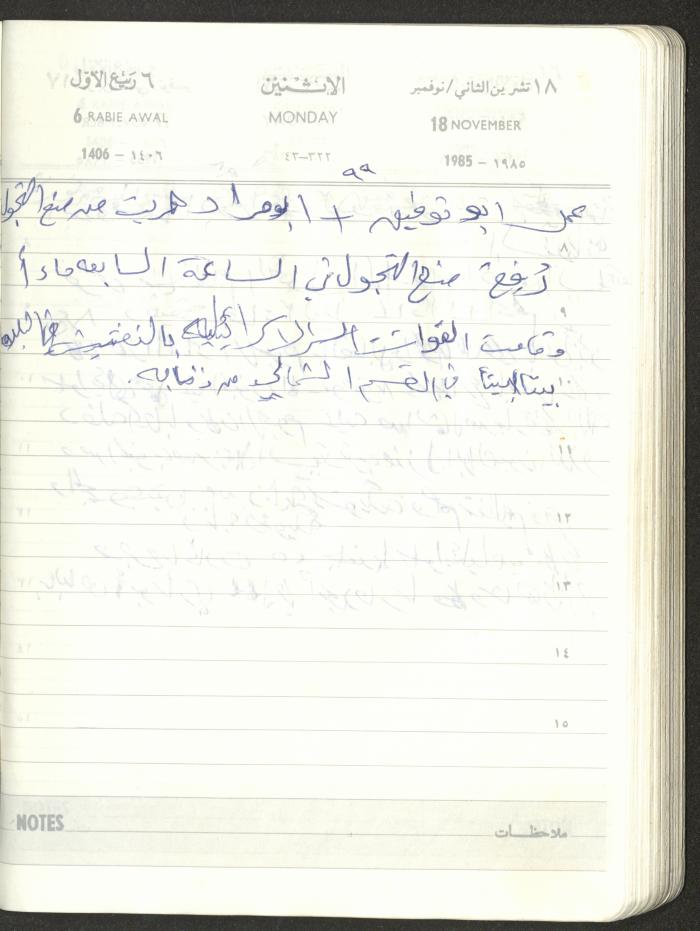 ١٨ تشرين الثاني/نوفمبر الاثنين ٦ ربيع الأول
18 NOVEMBER MONDAY 6 RABIE AWAL
1985 – ١٩٨٥ ٤٣–٣٢٢ 1406 – ١٤٠٦
٩٩
عمل ابو توفيق + ابو مراد هربت من منع التجول
٨
رُفِعَ منع التجول في الساعة السابعه مساءاً
٩
وقامت القوات الاسرائيليه بالتفتيش
بيتاً بيتاً في القسم الشمالي من ذنابه.
١١
١٢
١٣
١٤
١٥
NOTES ملاحظات